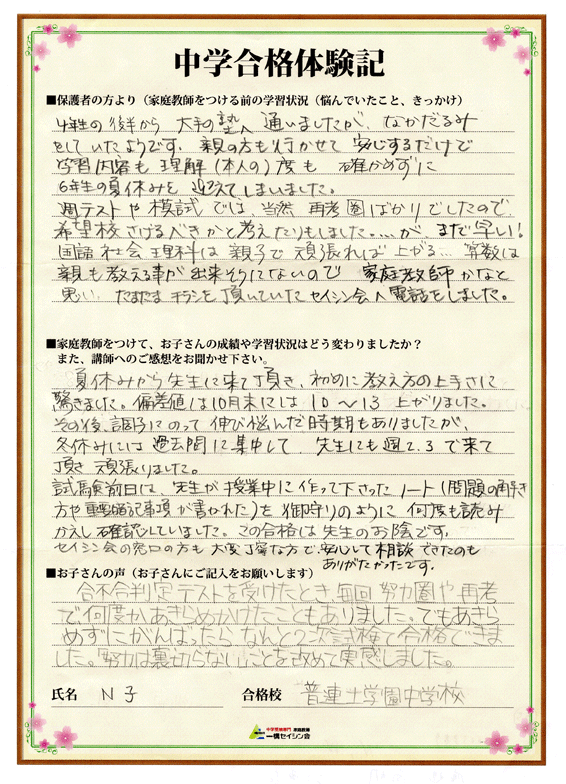 中学合格体験記
■保護者の方より（家庭教師をつける前の学習状況（悩んでいたこと、きっかけ）
4年生の後半から 大手の塾へ 通いましたが、なかだるみ
をしていたようです。親の方も行かせて 安心するだけで
学習内容も 理解（本人の）度も 確かめずに
6年生の夏休みを 迎えてしまいました。
週テストや 模試では、当然 再考圏ばかりでしたので、
希望校さげるべきかと考えたりもしました。…が、まだ早い！
国語 社会 理科は 親子で 頑張れば 上がる… 算数は
親も教える事が 出来そうにないので 家庭教師かなと
思い、たまたま チラシを頂いていた セイシン会へ電話をしました。
■家庭教師をつけて、お子さんの成績や学習状況はどう変わりましたか？
また、講師へのご感想をお聞かせ下さい。
夏休みから 先生に来て頂き、初めに教え方の上手さに
驚きました。偏差値は10月末には 10〜13 上がりました。
その後、調子にのって 伸び悩んだ時期もありましたが、
冬休みには 過去問に集中して、先生にも週2.3で来て
頂き 頑張りました。
試験前日は、先生が授業中に作って下さった ノート（問題の解き
方や重要暗記事項が書かれた）を 御守りのように 何度も読み
かえし 確認していました。この合格は先生のお陰です。
セイシン会の窓口の方も 大変丁寧な方で、安心して相談できたのも
ありがたかったです。
■お子さんの声（お子さんにご記入をお願いします）
合不合判定テストを受けたとき、毎回 努力圏や再考
で、何度かあきらめかけたこともありました。でもあきら
めずにがんばったら なんと2次試験で合格できま
した。「努力は裏切らない」ことを改めて実感しました。
氏名 N子 合格校 普連土学園中学校
中学受験専門 家庭教師
一橋セイシン会